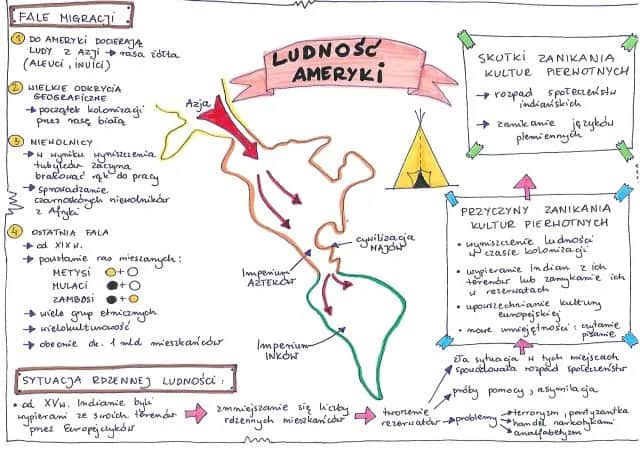 FALE MIGRACJI
1 DO AMERYKI DOCIERAJĄ
LUDY Z AZJI → rasa żółta
(ALEUCI, INUICI)
2 WIELKIE ODKRYCIA
GEOGRAFICZNE
→ początek kolonizacji
przez rasę białą
3 NIEWOLNICY
→ w wyniku wyniszczenia
tubylców zaczyna
brakować rąk do pracy
→ sprowadzanie
czarnoskórych niewolników
z Afryki
4 OSTATNIA FALA
→ od XIX w.
→ powstanie ras mieszanych:
METYSI
MULACI
ZAMBOSI
→ wiele grup etnicznych
→ wielokulturowość
→ obecnie ok. 1 mld mieszkańców
LUDNOŚĆ
AMERYKI
Azja
cywilizacja
MAJÓW
Imperium
AZTEKÓW
Imperium
INKÓW
SKUTKI ZANIKANIA
KULTUR PIERWOTNYCH
→ rozpad społeczeństw
indiańskich
→ zanikanie języków
plemiennych
PRZYCZYNY ZANIKANIA
KULTUR PIERWOTNYCH
• wyniszczenie ludności
w czasie kolonizacji
• wypieranie Indian z ich
terenów lub zamykanie ich
w rezerwatach
• upowszechnianie kultury
europejskiej
• nowe umiejętności: czytanie
pisanie
SYTUACJA RDZENNEJ LUDNOŚCI:
• od XV w. Indianie byli
wypierani ze swoich terenów
przez Europejczyków
zmniejszanie się liczby
rdzennych mieszkańców
tworzenie
rezerwatów
zła sytuacja w tych miejscach
spowodowała rozpad społeczeństw
próby pomocy, asymilacja
problemy
terroryzm, partyzantka
handel narkotykami
analfabetyzm